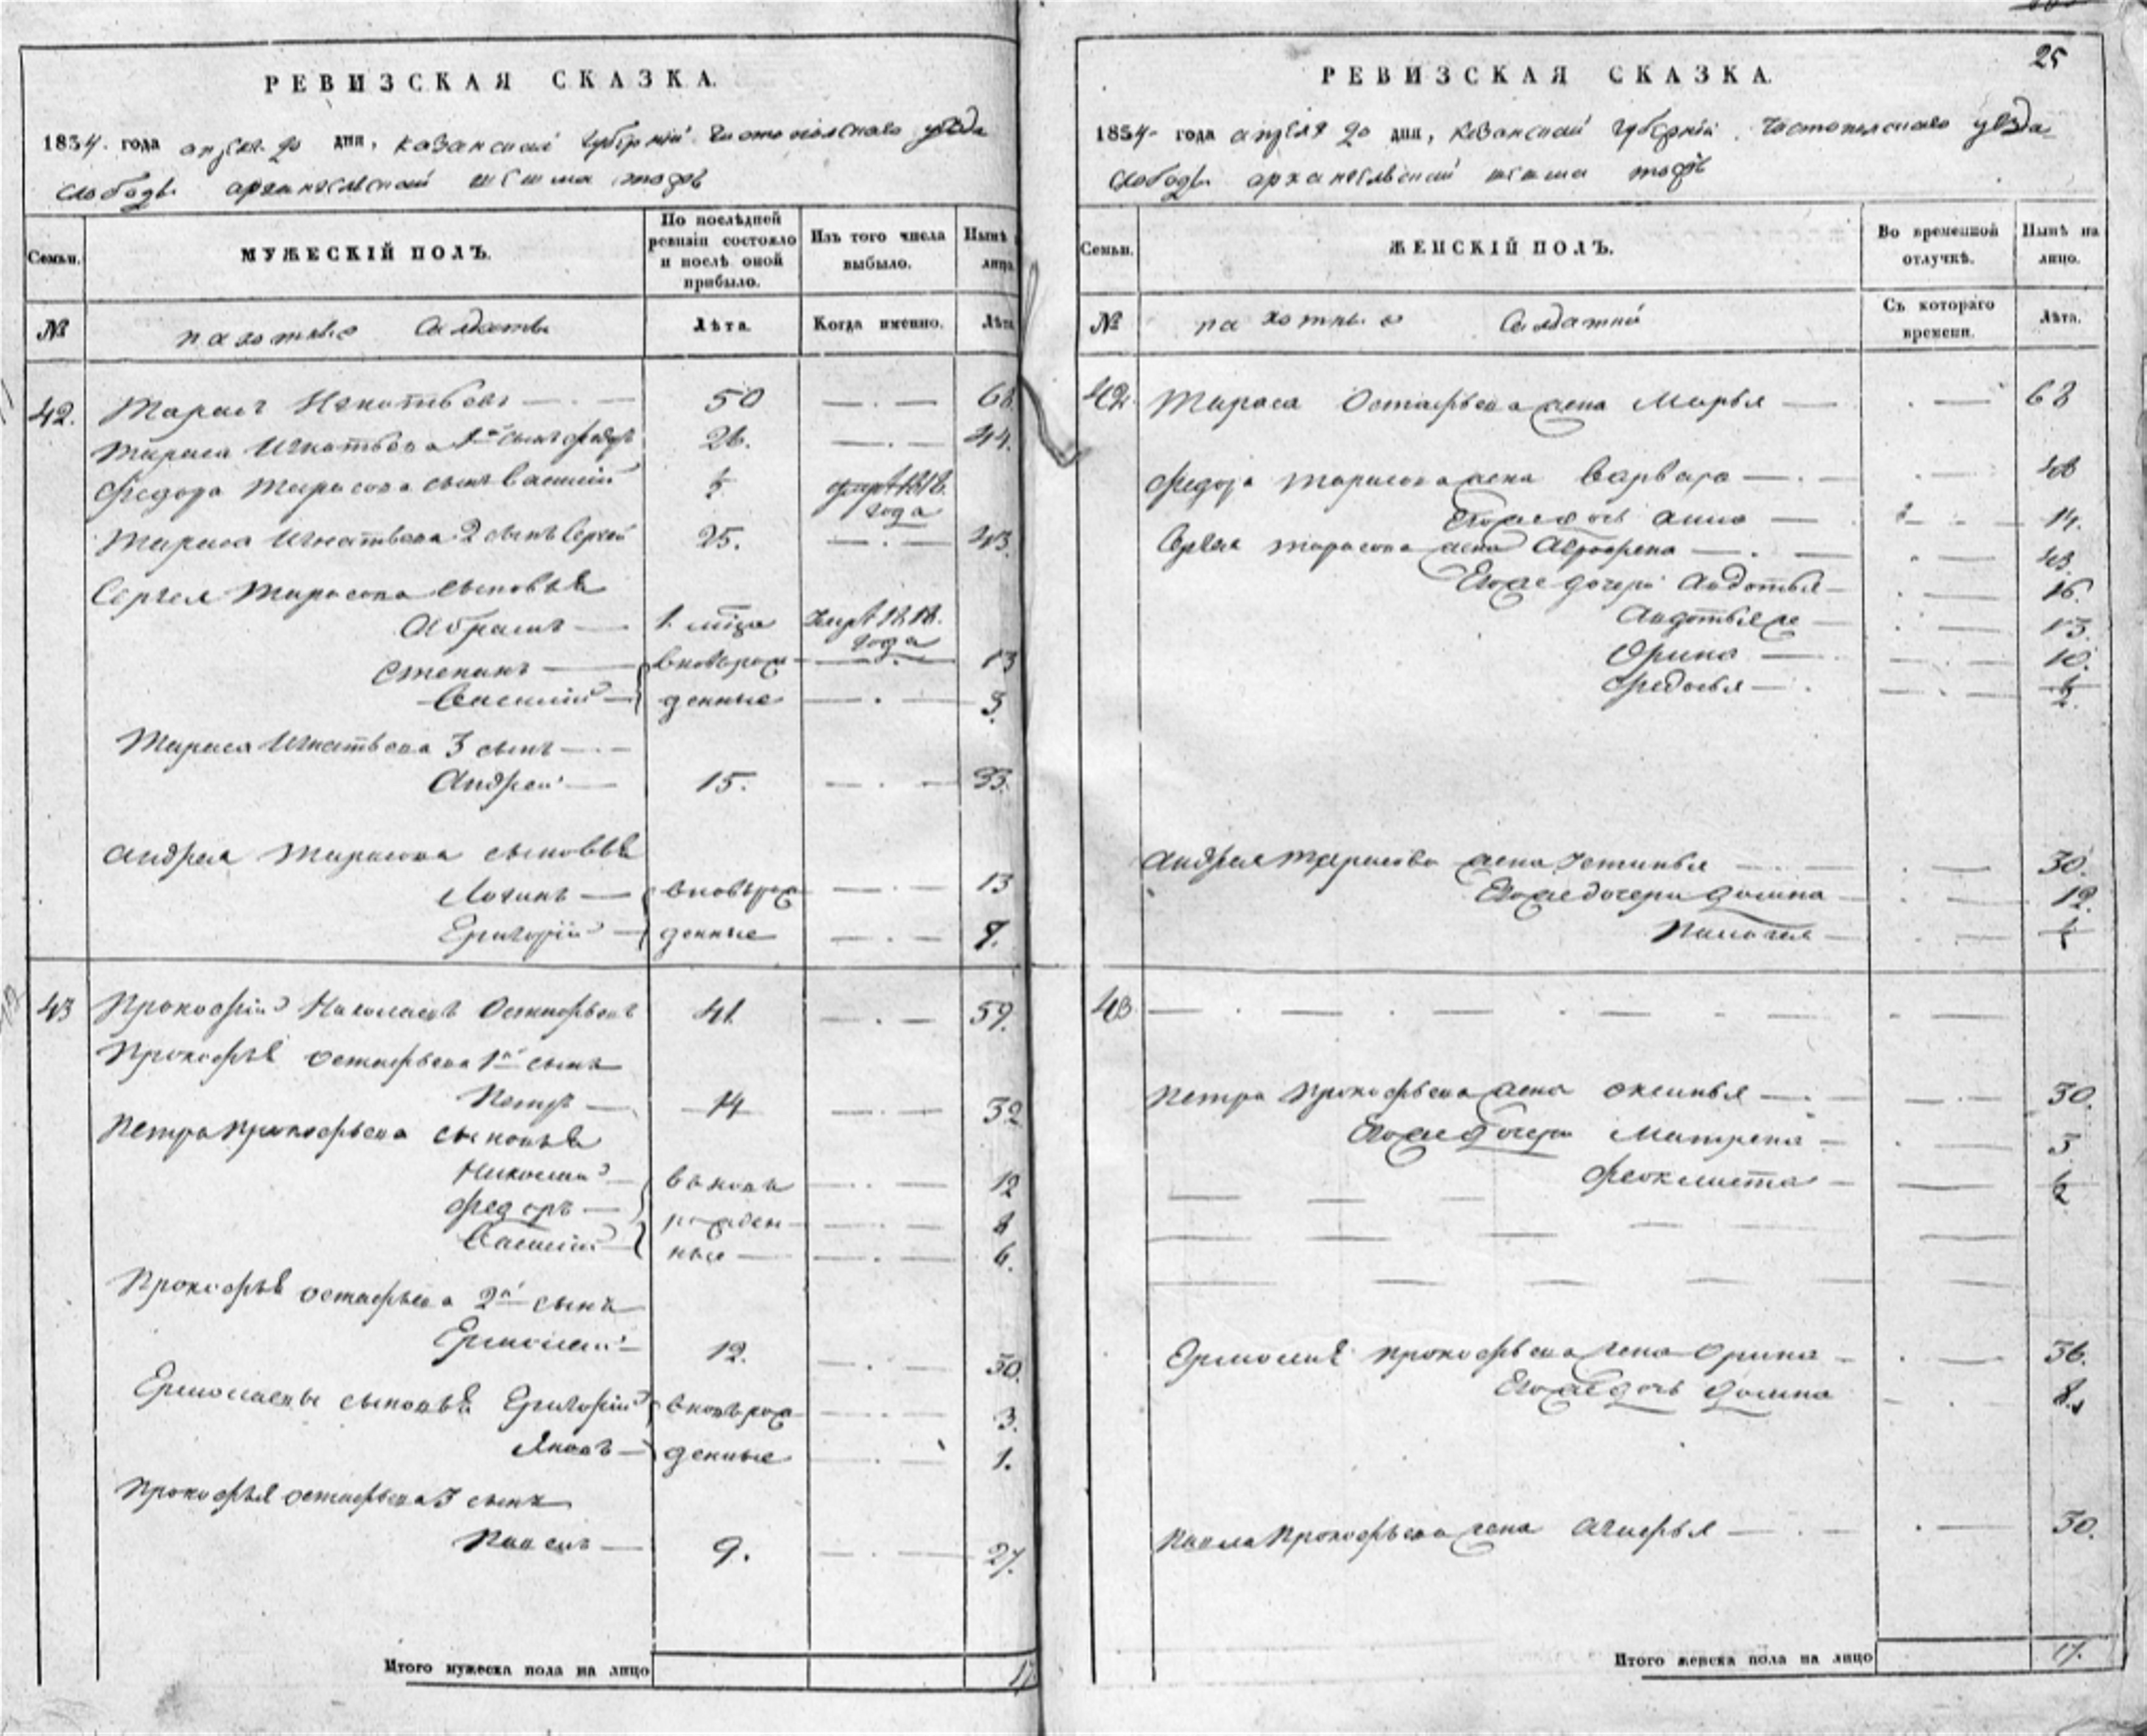 РЕВИЗСКАЯ СКАЗКА.
1834. года апреля 20 дня, казанской губернии Чистопольскаго уезда
слободы архангельской
Семьи.
МУЖЕСКІЙ ПОЛЪ.
По послѣдней ревизіи состояло и послѣ оной прибыло.
Изъ того числа выбыло.
Нынѣ лицо
№
пахотные Солдаты
Лѣта.
Когда именно.
Лѣта
42. Тарасъ Игнатьевъ 50 68
Тараса Игнатьева 1й сынъ Федоръ 26. 44.
Федора Тарасова сынъ Василий года
Тараса Игнатьева 2 сынъ Сергей 25. 43.
Сергея Тарасова сыновья
Абрамъ 1. года
Степанъ вновьрож 13
Василий денные 3.
Тараса Игнатьева 3 сынъ
Андрей 15. 33.
Андрея Тарасова сыновья
Логинъ вновьрож 13
Григорий денные 7.
43 Прокофий Николаевъ Остафьевъ 41. 59.
Прокофья остафьева 1й сынъ
Петръ 14 32
Петра прокофьева сыновья
Николай вновь 12
Федоръ рожден 8
Василий ные 6.
Прокофья остафьева 2й сынъ
Ермолай 12. 30.
Ермолаевы сыновья Григорий вновьрож 3.
Яковъ денные 1.
Прокофья остафьева 3 сынъ
Павелъ 9. 27.
Итого мужеска пола на лицо 17
25
РЕВИЗСКАЯ СКАЗКА.
1834 года апреля 20 дня, казанской губернии Чистопольскаго уезда
слободы архангельской
Семьи.
ЖЕНСКІЙ ПОЛЪ.
Во временной отлучкѣ.
Нынѣ на лицо.
№
пахотные Солдатки
Съ котораго времени.
Лѣта.
42. Тараса Остафьева жена Марья 68
Федора тарасова жена Варвара
Егоже дочь анна 14.
Сергея тарасова жена Аграфена 43.
Егоже дочери Авдотья 16.
Авдотья же 13.
Орина 10.
Федосья 1/2
Андрея тарасова жена Устинья 30.
Егоже дочери домна 12.
Палагея
43.
Петра прокофьева жена оксинья 30.
Егоже дочери Матрена 3.
Феоклиста 1/2
Ермолая прокофьева жена орина 36.
Егоже дочь домна 8.
Павла Прокофьева жена Агафья 30.
Итого женска пола на лицо 17.